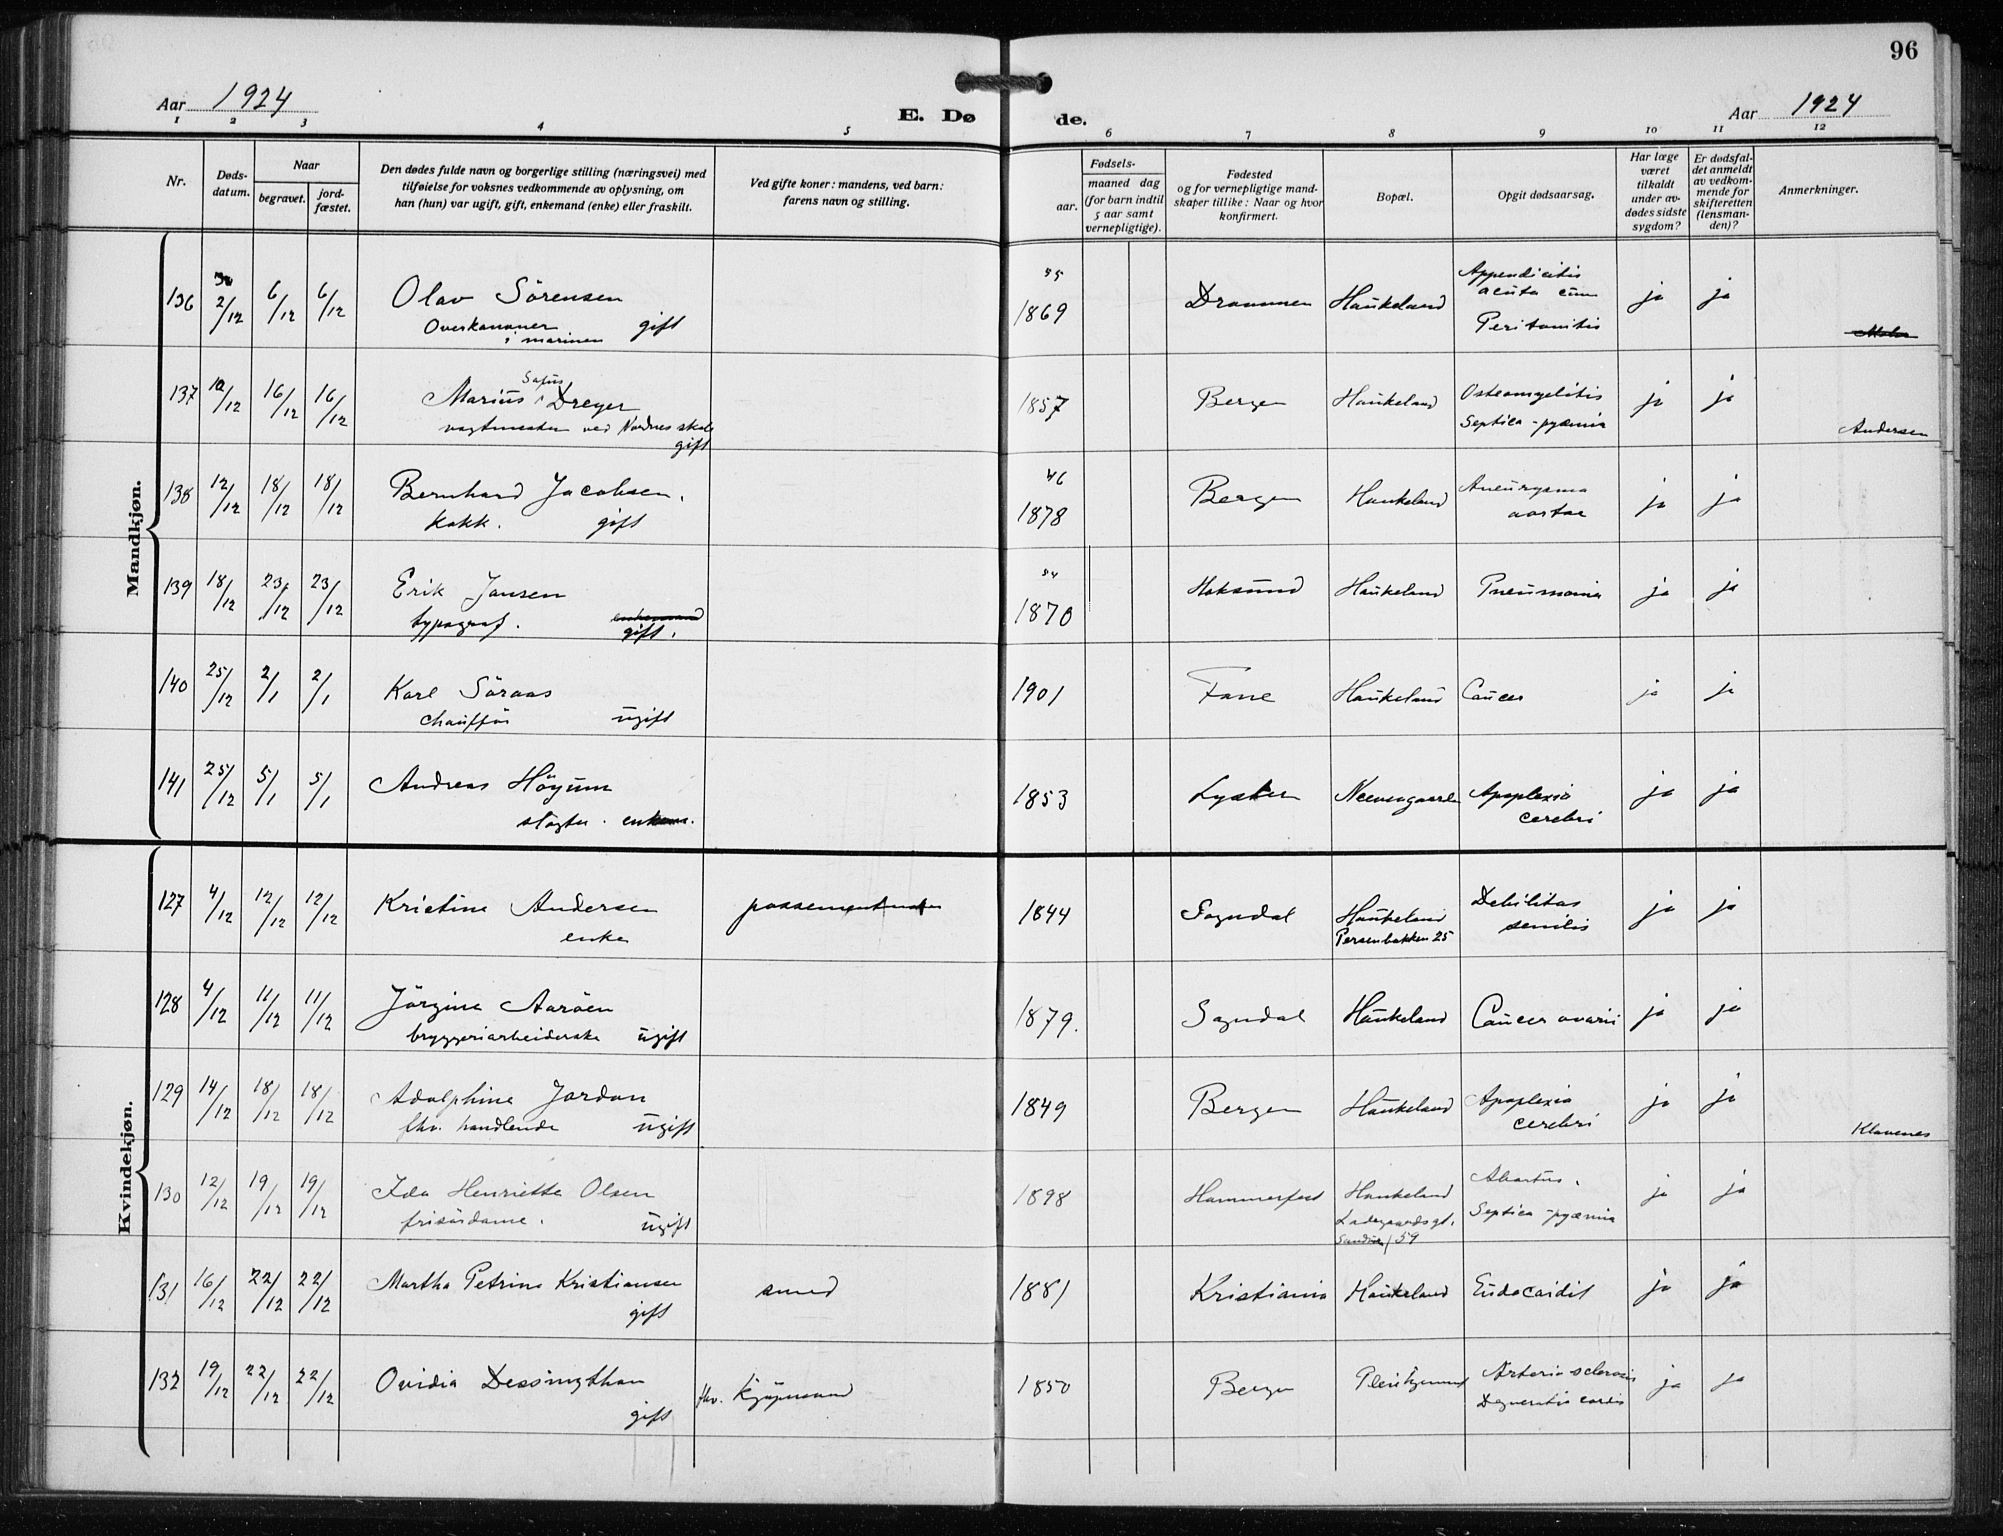 96
Aar 1924
E. Dø
de.
Aar 1924
1 2 3 4 5 6 7 8 9 10 11 12
Nr.
Døds-
datum.
Naar
begravet.
jord-
fæstet.
Den dødes fulde navn og borgerlige stilling (næringsvei) med
tilføielse for voksnes vedkommende av oplysning, om
han (hun) var ugift, gift, enkemand (enke) eller fraskilt.
Ved gifte koner: mandens, ved barn:
farens navn og stilling.
Fødsels-
aar.
maaned dag
(for barn indtil
5 aar samt
vernepligtige).
Fødested
og for vernepligtige mand-
skaper tillike: Naar og hvor
konfirmert.
Bopæl.
Opgit dødsaarsag.
Har læge
været
tilkaldt
under av-
dødes sidste
sygdom?
Er dødsfal-
det anmeldt
av vedkom-
mende for
skifteretten
(lensman-
den)?
Anmerkninger.
Mandkjøn.
136 2/12 6/12 6/12 Olav Sörensen 55 1869 Drammen Haukeland Appendicitis
acuta cum
Peritonitis ja ja
Overkanoner gift
i marinen
137 10/12 16/12 16/12 Marius Dreyer 1857 Bergen Haukeland Osteomyelitis
Septico-pyæmia ja ja
vagtmester ved Nordnes skole
gift
Andersen
138 12/12 18/12 18/12 Bernhard Jacobsen. 46 1878 Bergen Haukeland Aneurysma
aortae ja ja
kokk. gift
139 18/12 23/12 23/12 Erik Jansen 54 1870 Hoksund Haukeland Pneumonia ja ja
typograf. enkemand
gift.
140 25/12 2/1 2/1 Karl Söraas 1901 Fane Haukeland Cancer ja ja
chaufför ugift
141 25/12 5/1 5/1 Andreas Höyum 1853 Lyster Neevengaarden Apoplexia
cerebri ja ja
slagter. enkem.
Kvindekjøn.
127 4/12 12/12 12/12 Kristine Andersen 1844 Sogndal Haukeland
Persenbakken 25 Debilitas
senilis ja ja
enke
128 4/12 11/12 11/12 Jörgine Aaröen 1879. Sogndal Haukeland Cancer ovarii ja ja
bryggeriarbeiderske ugift
129 14/12 18/12 18/12 Adolphine Jordan 1849 Bergen Haukeland Apoplexia
cerebri ja ja
fhv. handlende ugift
Klavenes
130 12/12 19/12 19/12 Ida Henriette Olsen 1898 Hammerfest Haukeland
Ladegaardsgt.
59 Abortus.
Septico-pyæmia ja ja
frisördame. ugift
131 16/12 22/12 22/12 Martha Petrine Kristiansen smed 1881 Kristiania Haukeland Endocardit ja ja
gift
132 19/12 22/12 22/12 Ovidia Dessingthon fhv. kjöpmand 1850 Bergen Arteriosclerosis
Degeneratio cordis ja ja
gift